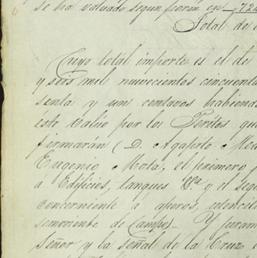 se ha valuado segun parem en
Total de
Cuyo total importe es el de
y seis mil nuevecientos cincuenta
senta y un centavos habiendo
este valúo por los Peritos que
firmarán (D. Agapito
Eugenio Mota, el primero
a Edificios, tanques &ª y el seg
concerniente a aperos,
semoviente de Campo). Y juram
Señor y la señal de la Cruz